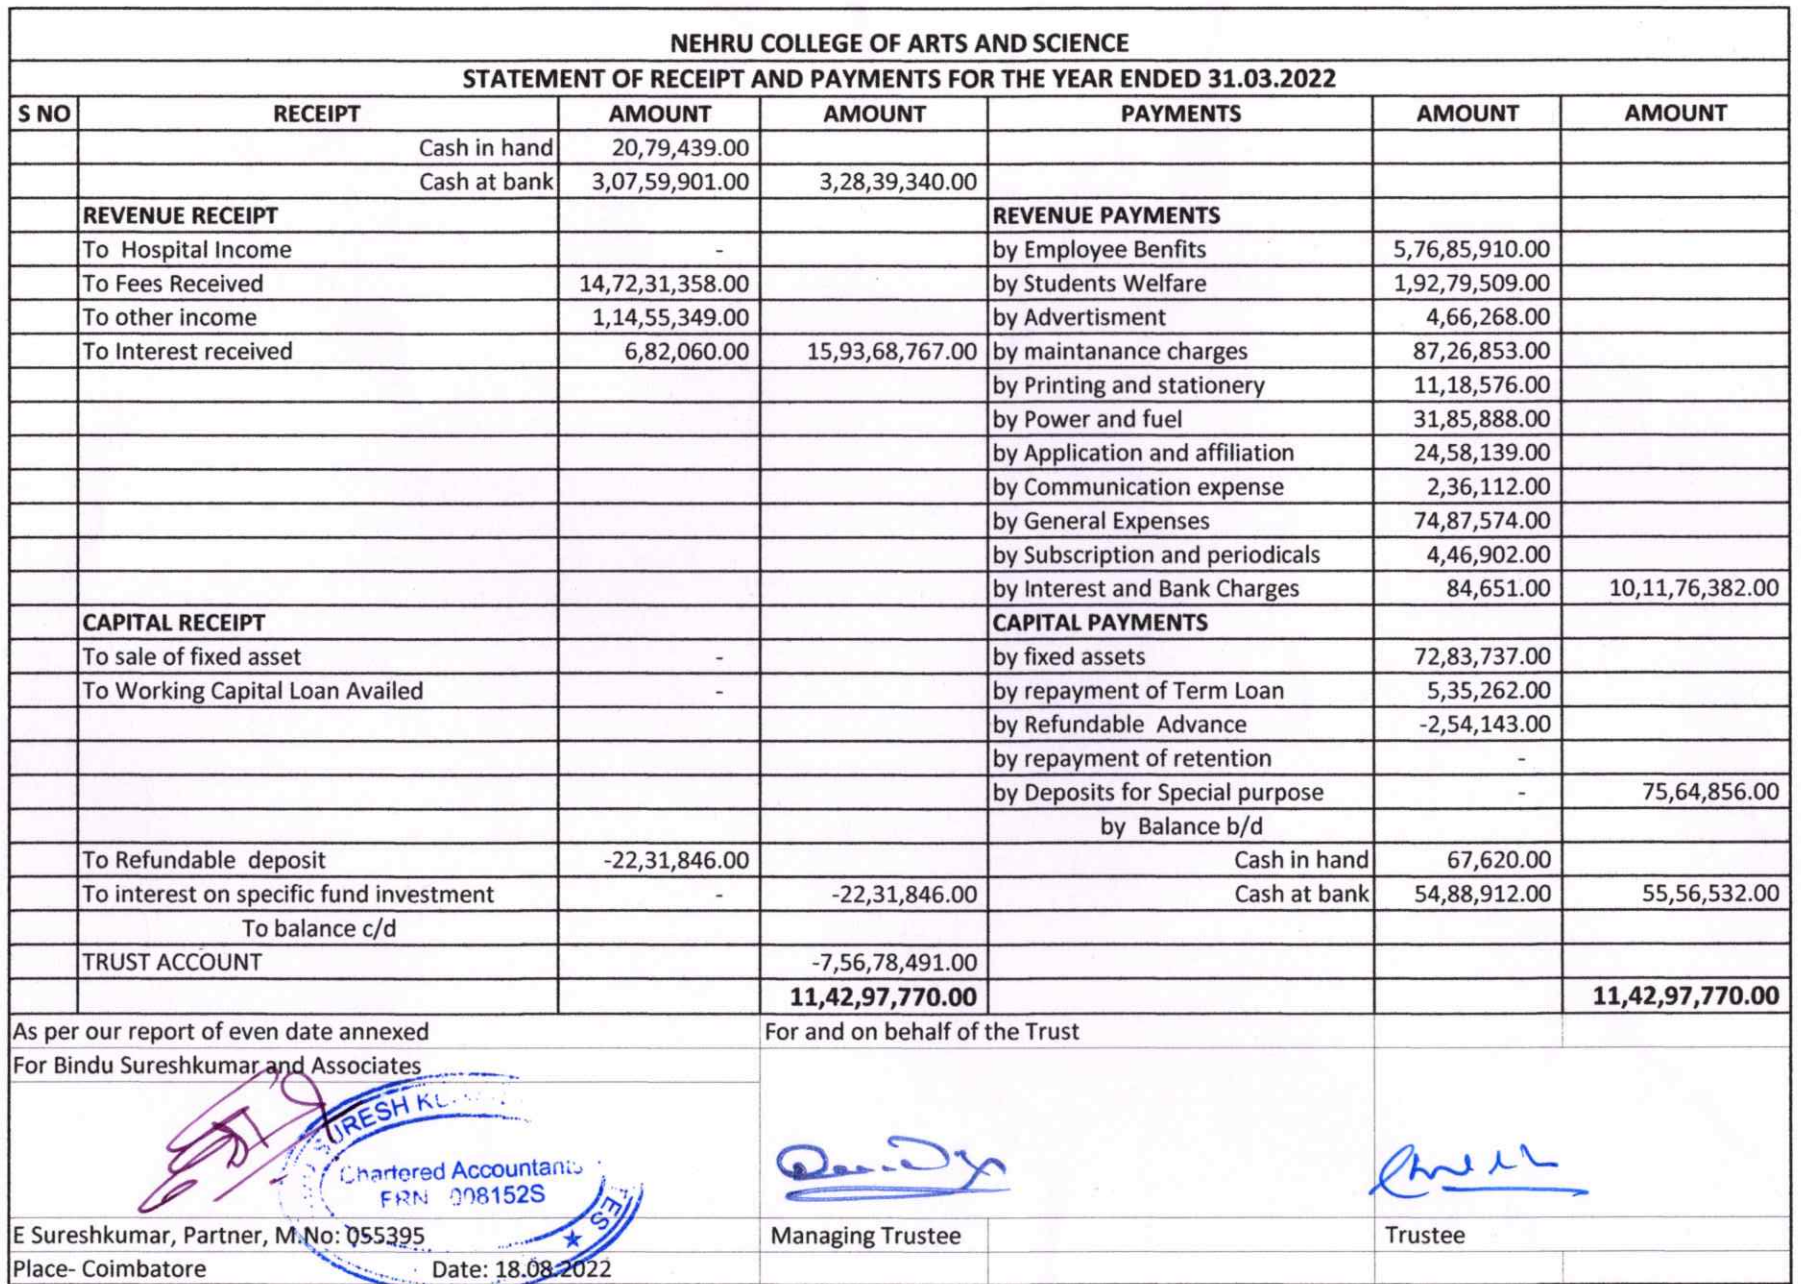 NEHRU COLLEGE OF ARTS AND SCIENCE
STATEMENT OF RECEIPT AND PAYMENTS FOR THE YEAR ENDED 31.03.2022
S NO RECEIPT AMOUNT AMOUNT PAYMENTS AMOUNT AMOUNT
Cash in hand 20,79,439.00
Cash at bank 3,07,59,901.00 3,28,39,340.00
REVENUE RECEIPT REVENUE PAYMENTS
To Hospital Income - by Employee Benfits 5,76,85,910.00
To Fees Received 14,72,31,358.00 by Students Welfare 1,92,79,509.00
To other income 1,14,55,349.00 by Advertisment 4,66,268.00
To Interest received 6,82,060.00 15,93,68,767.00 by maintanance charges 87,26,853.00
by Printing and stationery 11,18,576.00
by Power and fuel 31,85,888.00
by Application and affiliation 24,58,139.00
by Communication expense 2,36,112.00
by General Expenses 74,87,574.00
by Subscription and periodicals 4,46,902.00
by Interest and Bank Charges 84,651.00 10,11,76,382.00
CAPITAL RECEIPT CAPITAL PAYMENTS
To sale of fixed asset - by fixed assets 72,83,737.00
To Working Capital Loan Availed - by repayment of Term Loan 5,35,262.00
by Refundable Advance -2,54,143.00
by repayment of retention -
by Deposits for Special purpose - 75,64,856.00
by Balance b/d
To Refundable deposit -22,31,846.00 Cash in hand 67,620.00
To interest on specific fund investment - -22,31,846.00 Cash at bank 54,88,912.00 55,56,532.00
To balance c/d
TRUST ACCOUNT -7,56,78,491.00
11,42,97,770.00 11,42,97,770.00
As per our report of even date annexed For and on behalf of the Trust
For Bindu Sureshkumar and Associates
SURESH
Chartered Accountants
FRN 008152S
E Sureshkumar, Partner, M.No: 055395 Managing Trustee Trustee
Place- Coimbatore Date: 18.08.2022